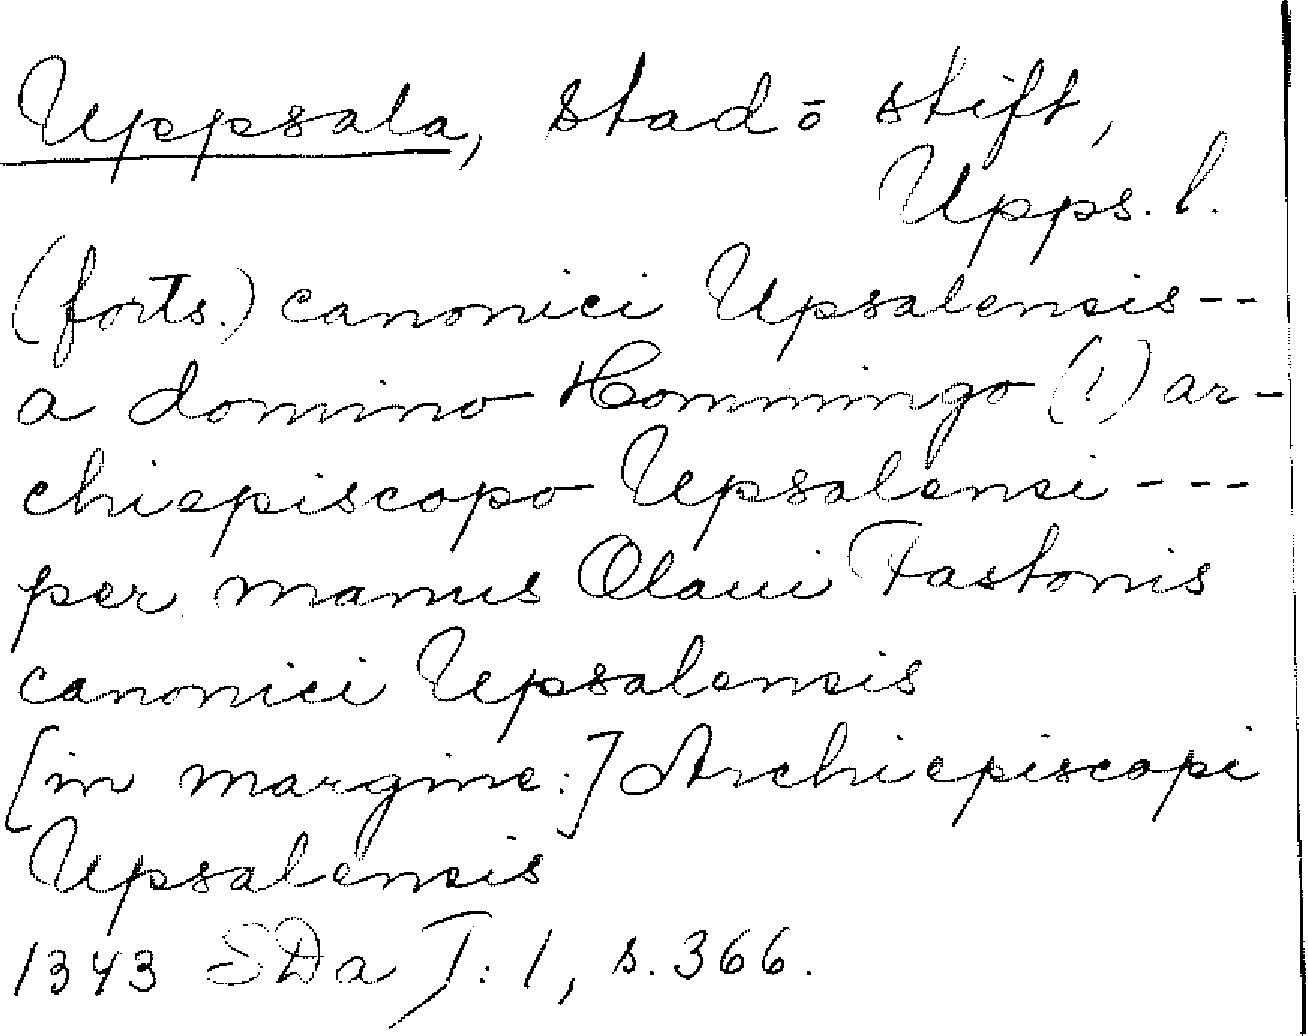 Uppsala, stad ō stift,
Upps. l.
(forts.) canonici Upsalensis --
a domino Hommingo (!) ar-
chiepiscopo Upsalensi ---
per manus Olaui Fastonis
canonici Upsalensis
[in margine:] Archiepiscopi
Upsalensis
1343 SDa I: 1, s. 366.